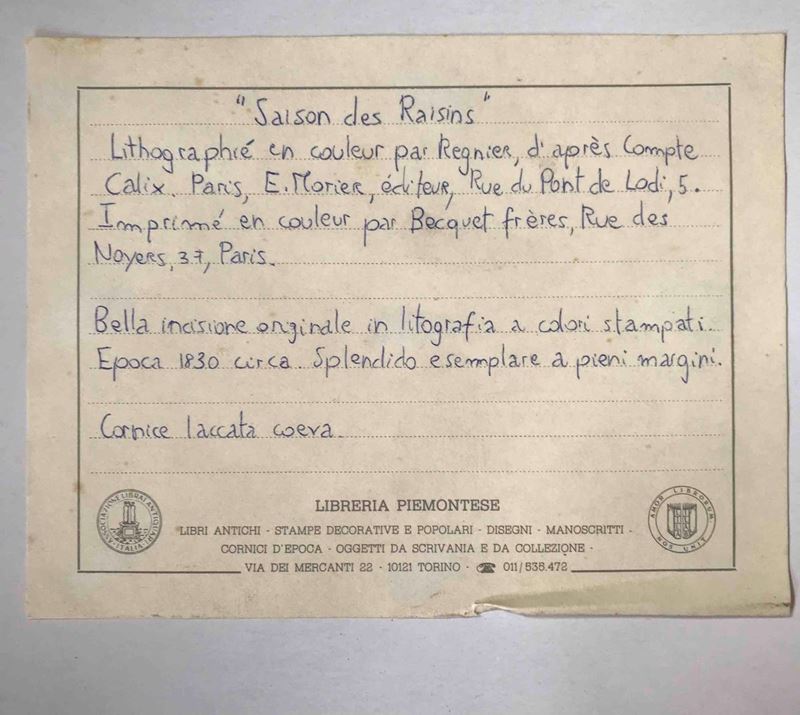 "Saison des Raisins"
Lithographié en couleur par Regnier, d'après Compte
Calix. Paris, E. Morier, éditeur, Rue du Pont de Lodi, 5.
Imprimé en couleur par Becquet frères, Rue des
Noyers, 37, Paris.
Bella incisione originale in litografia a colori stampati.
Epoca 1830 circa. Splendido esemplare a pieni margini.
Cornice laccata coeva.
LIBRERIA PIEMONTESE
LIBRI ANTICHI - STAMPE DECORATIVE E POPOLARI - DISEGNI - MANOSCRITTI -
CORNICI D'EPOCA - OGGETTI DA SCRIVANIA E DA COLLEZIONE -
VIA DEI MERCANTI 22 - 10121 TORINO - ☎ 011/535.472
ASSOCIAZIONE LIBRAI ANTIQUARI D'ITALIA
AMOR LIBRORUM NOS UNIT